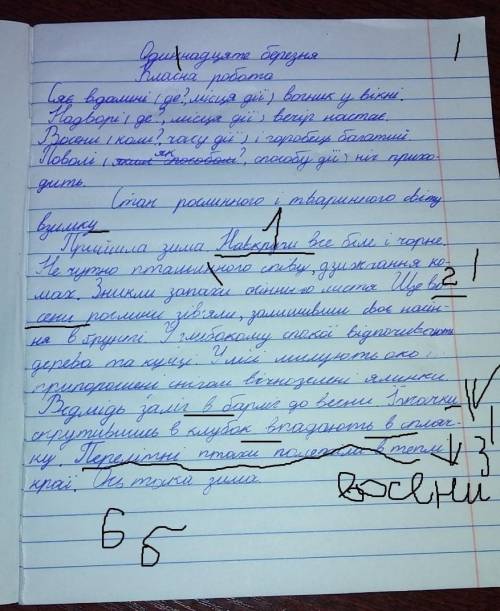 Одиннадцяте березня 1
Класна робота
Сяє вдалині (де?, місця дії) вогник у вікні.
Надворі (де?, місця дії) вечір настає.
Восени (коли?, часу дії) і горобець багатий.
Поволі (як?, способу дії) ніч прихо-
дить.
Стан рослинного і тваринного світу
взимку
1
Прийшла зима. Навкруги все біле і чорне.
Не чутно пташиного співу, дзижчання ко-
мах. Зникли запахи осіннього листя. Ще во 2 1
сени рослини зів'яли, залишивши своє насін-
ня в ґрунті. У глибокому спокої відпочивають
дерева та кущі. Усміх милують око і
припорошені снігом вічнозелені ялинки.
Ведмідь заліг в барліг до весни. Їжачки V
скрутившись в клубок впадають в спляч- 1
ку. Перелітні птахи полетіли в теплі V 3
краї. Ось така зима. восени
6 б